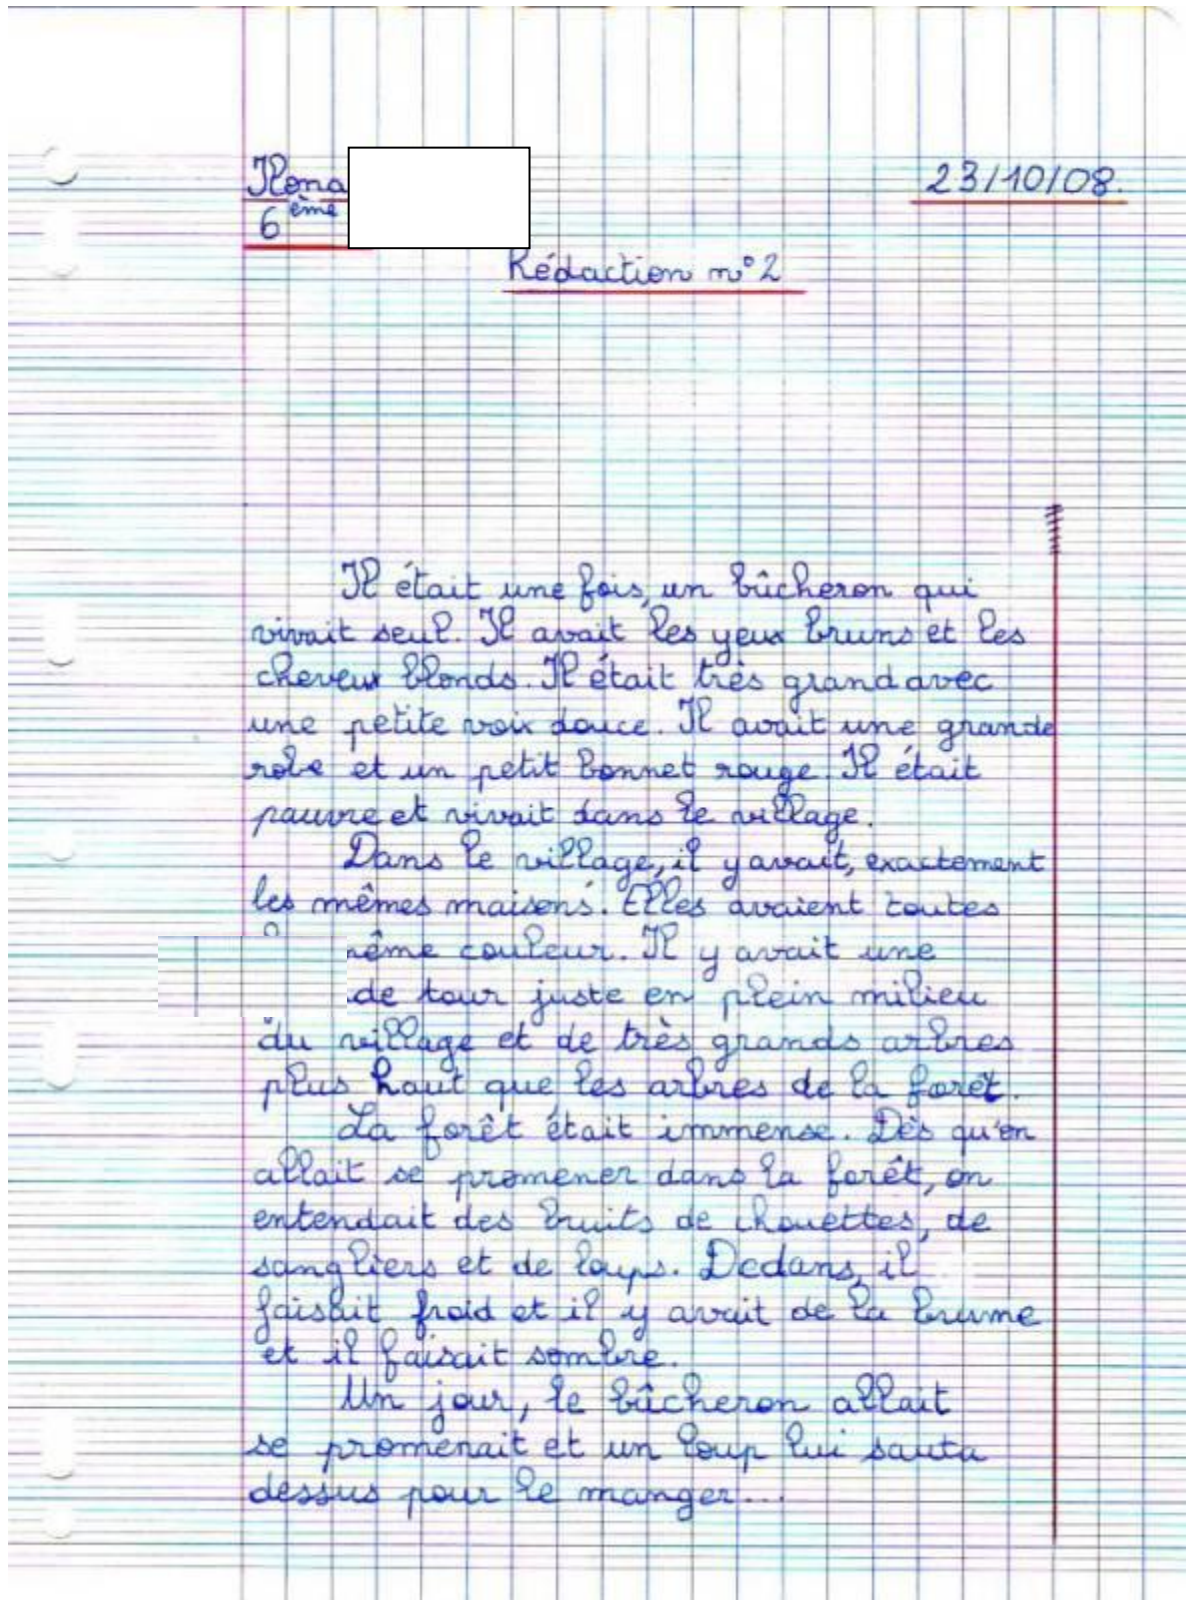 Ilona
6ème
23/10/08.
Rédaction n°2
Il était une fois, un bûcheron qui
vivait seul. Il avait les yeux bruns et les
cheveux blonds. Il était très grand avec
une petite voix douce. Il avait une grande
robe et un petit bonnet rouge. Il était
pauvre et vivait dans le village.
Dans le village, il y avait, exactement
les mêmes maisons. Elles avaient toutes
même couleur. Il y avait une
de tour juste en plein milieu
du village et de très grands arbres
plus haut que les arbres de la forêt.
La forêt était immense. Dès qu'on
allait se promener dans la forêt, on
entendait des bruits de chouettes, de
sangliers et de loups. Dedans, il
faisait froid et il y avait de la brume
et il faisait sombre.
Un jour, le bûcheron allait
se promenait et un loup lui sauta
dessus pour le manger...